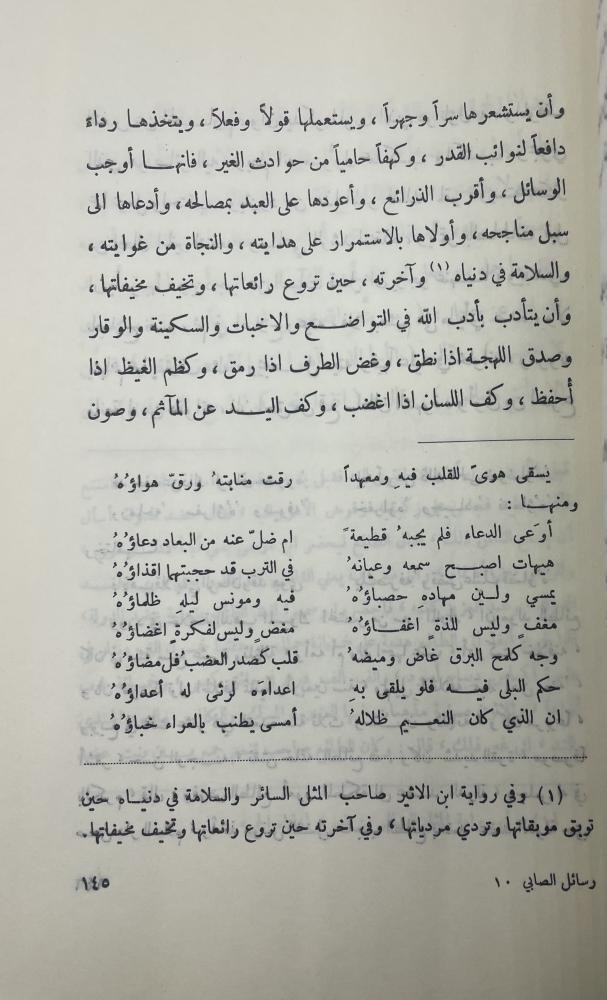 وأن يستشعرها سراً وجهراً ، ويستعملها قولاً وفعلاً ، ويتخذهـا رداءً
دافعاً لنوائب القدر ، وكهفاً حامياً من حوادث الغير ، فانهـــا أوجب
الوسائل ، وأقرب الذرائع ، وأعودها على العبد بمصالحه ، وأدعاها الى
سبل مناجحه ، وأولاها بالاستمرار على هدايته ، والنجاة من غوايته ،
والسلامة في دنياه (١) وآخرته ، حين تروع رائعاتها ، وتخيف مخيفاتها ،
وأن يتأدب بأدب الله في التواضــع والاخبات والسكينة والوقار
وصدق اللهجـة اذا نطق ، وغض الطرف اذا رمق ، وكظم الغيظ اذا
أُحفظ ، وكف اللسان اذا اغضب ، وكف اليـــد عن المآثم ، وصون
يسقى هوىً للقلب فيهِ ومعهداً رقت منابتهُ ورقّ هواؤُهُ
ومنهـــا :
أوَعى الدعاء فلم يجبهُ قطيعةً ام ضلّ عنه من البعاد دعاؤُهُ
هيهات اصبــح سمعه وعيانهُ في الترب قد حجبتها اقذاؤُهُ
يمسي ولــين مهادهِ حصباؤُهُ فيه ومونس ليلهِ ظلماؤُهُ
مغفٍ وليس للذةٍ اغفــاؤُهُ مغضٍ وليس لفكرةٍ اغضاؤُهُ
وجه كلمح البرق غاض وميضهُ قلب كصدر العضب فل مضاؤُهُ
حكم البلى فيــه فلو يلقى بهِ اعداءَه لرثى له أعداؤُهُ
ان الذي كان النعــيم ظلالهُ أمسى يطنب بالعراء خباؤُهُ
(١) وفي رواية ابن الاثير صاحب المثل السائر والسلامة في دنيــاه حين
توبق موبقاتها وتردي مردياتها ، وفي آخرته حين تروع رائعاتها وتخيف مخيفاتها.
رسائل الصابي ١٠ ١٤٥